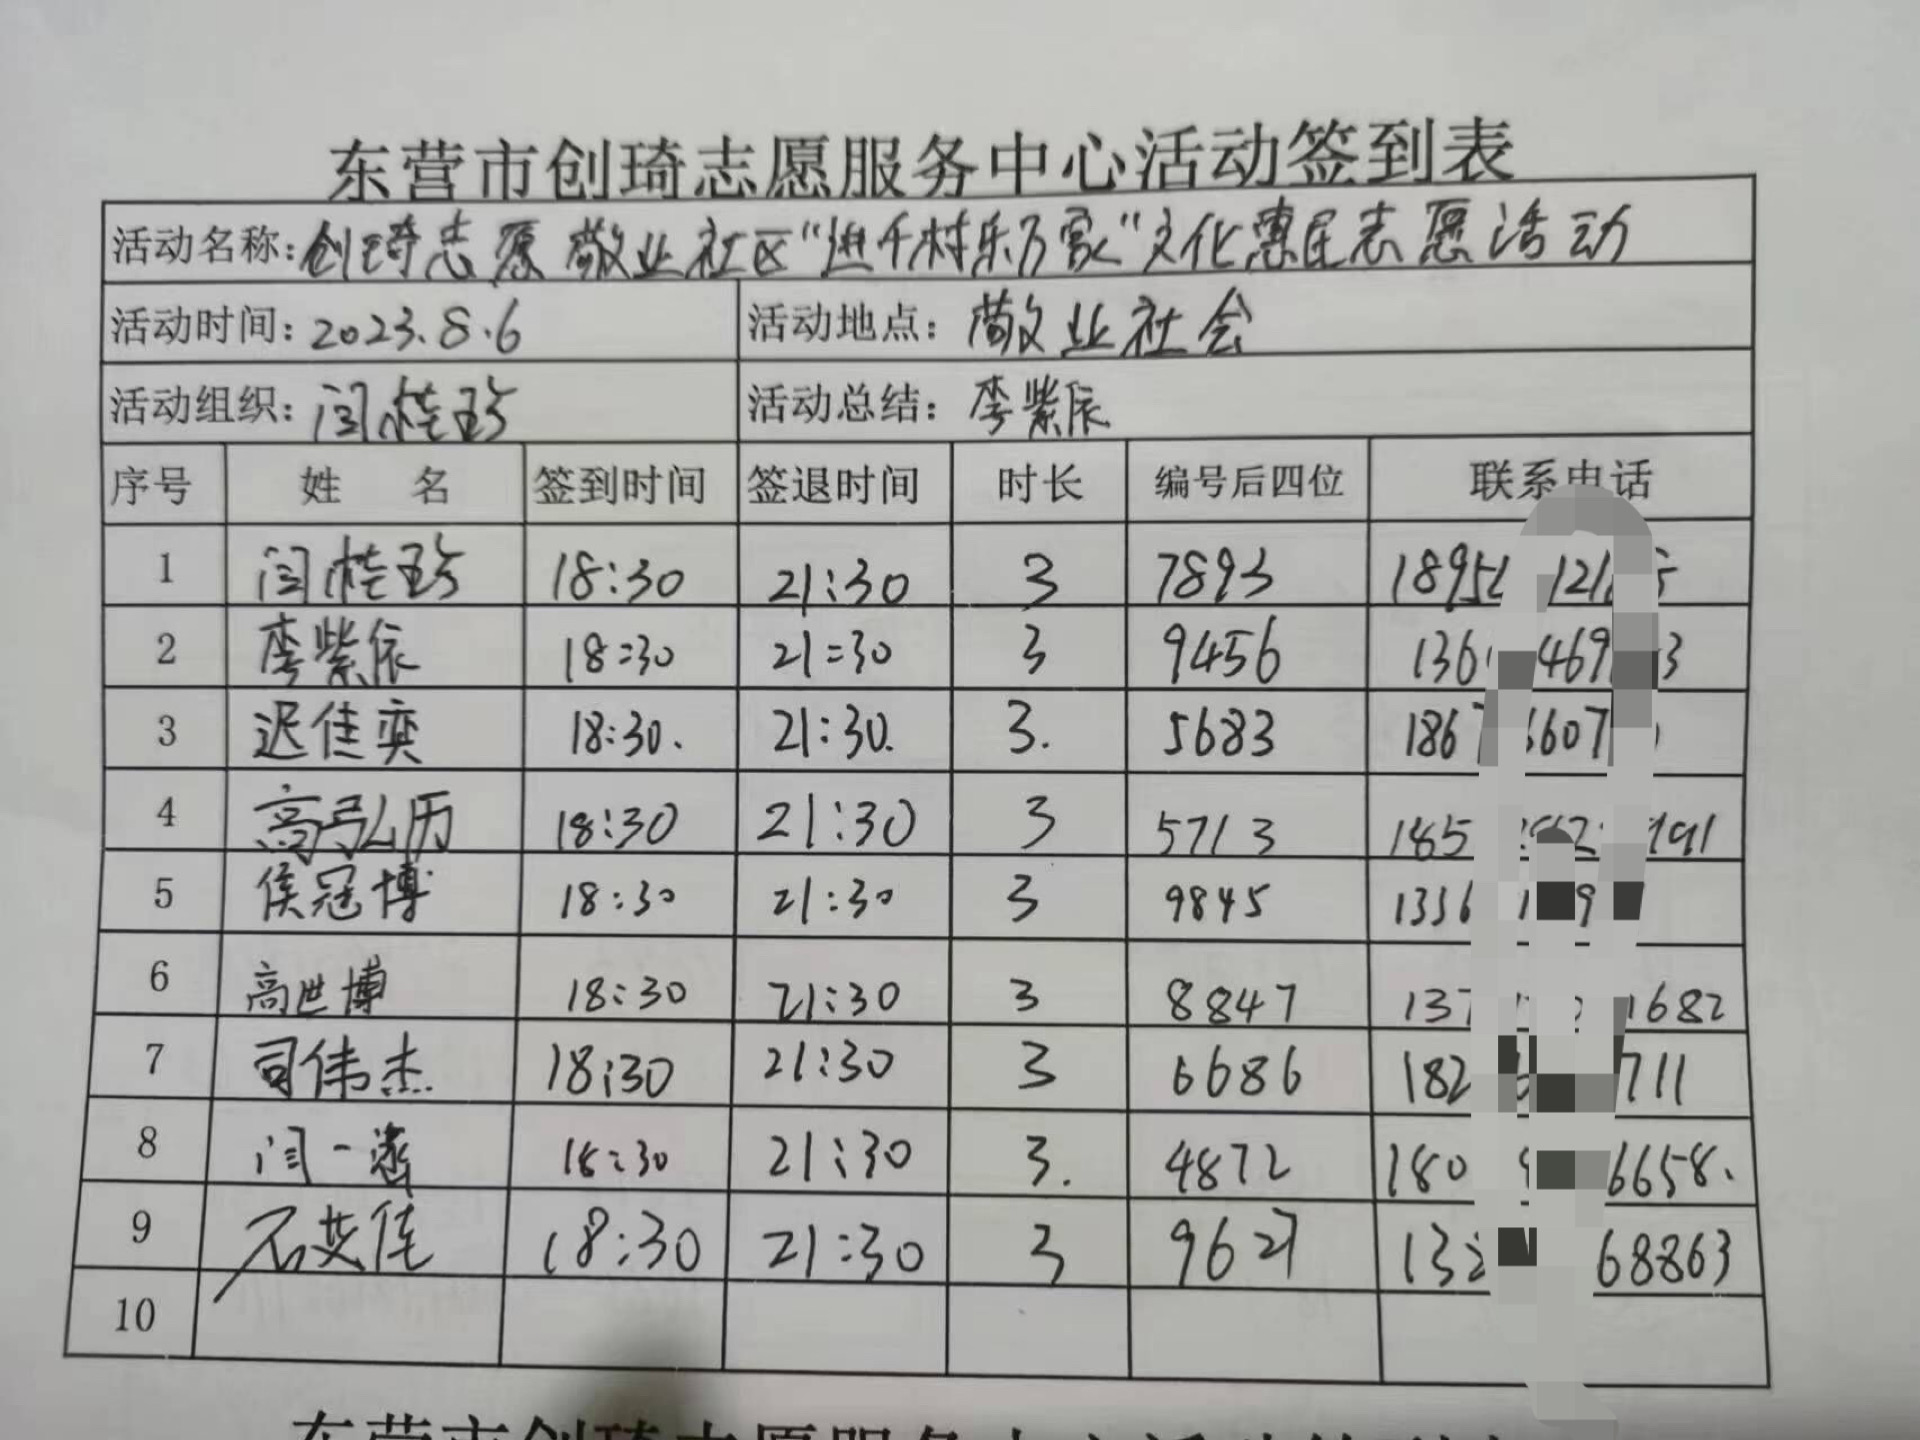 东营市创琦志愿服务中心活动签到表
活动名称：创琦志愿敬业社区“进千村乐万家”文化惠民志愿活动
活动时间：2023.8.6 活动地点：敬业社会
活动组织：闫桂珍 活动总结：李紫依
序号 姓名 签到时间 签退时间 时长 编号后四位 联系电话
1 闫桂珍 18:30 21:30 3 7893 1895
2 李紫依 18:30 21:30 3 9456 136 469 3
3 迟佳奕 18:30. 21:30. 3. 5683 186 607
4 18:30 21:30 3 5713 185 191
5 侯冠博 18:30 21:30 3 9845 1336 9
6 高世博 18:30 21:30 3 8847 137 1682
7 司伟杰 18:30 21:30 3 6686 182 711
8 闫一 18:30 21:30 3. 4872 180 6658.
9 石艾佳 18:30 21:30 3 9627 13 68863
10
东营市创琦志愿服务中心活动签到表